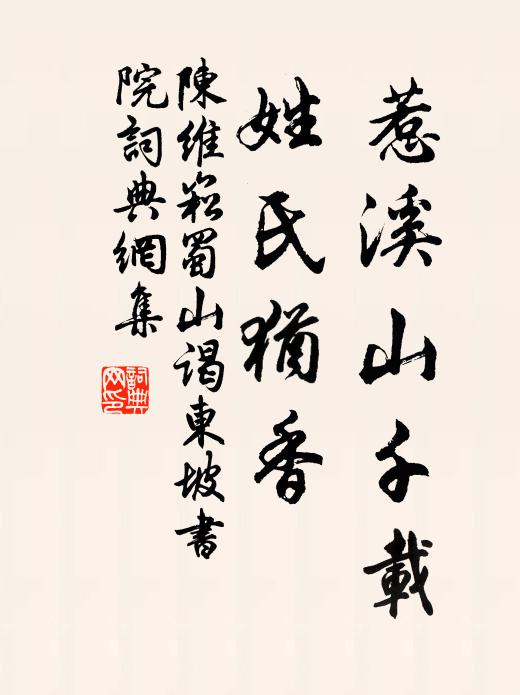 惹溪山千載
姓氏猶香
陳維崧蜀山謁東坡書
院詞典網集
詞典網印